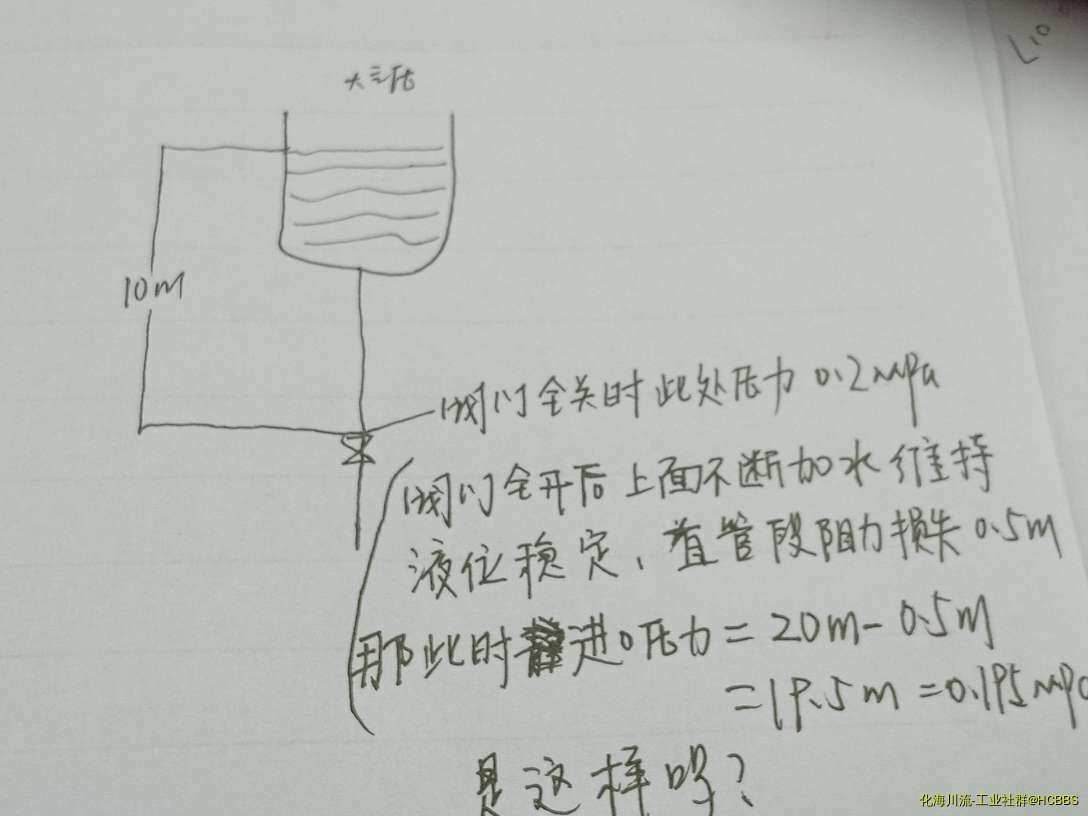 大气压
10m
阀门全关时此处压力 0.2MPa
阀门全开后上面不断加水维持
液位稳定,直管段阻力损失 0.5m
那此时进口压力 = 20m - 0.5m
= 19.5m = 0.195MPa
是这样吗?
化海川流-工业社群@HCBBS